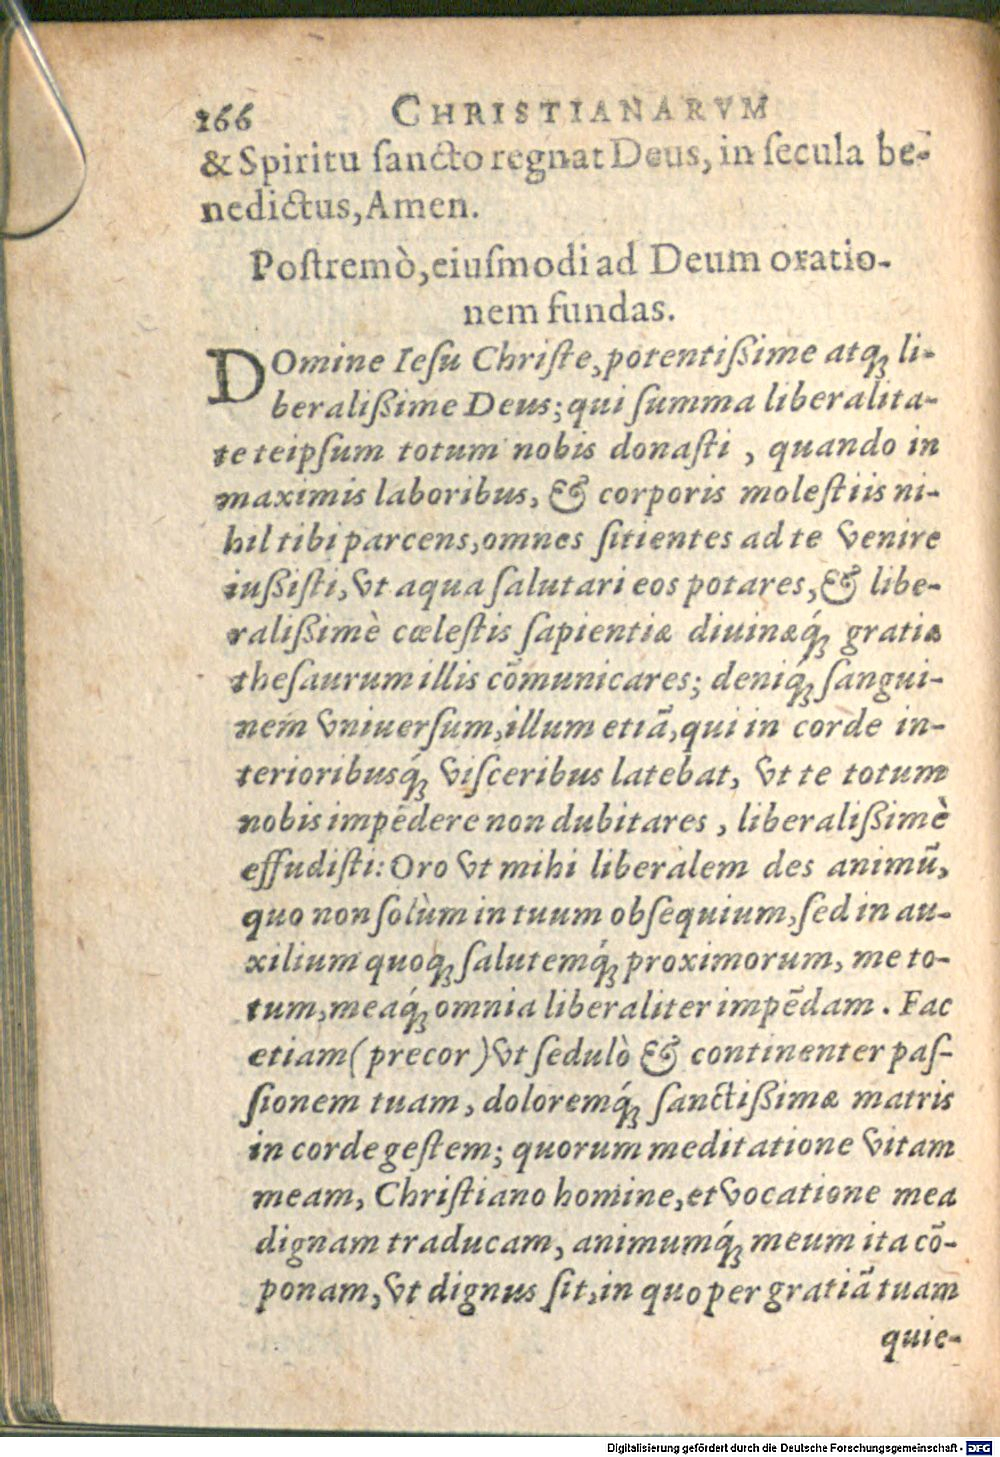 166 CHRISTIANARVM
& Spiritu ſancto regnat Deus, in ſecula be-
nedictus, Amen.
Poſtremò, eiuſmodi ad Deum oratio-
nem fundas.
DOmine Ieſu Chriſte, potentiſsime atq́; li-
beraliſsime Deus; qui ſumma liberalita-
te teipſum totum nobis donaſti, quando in
maximis laboribus, & corporis moleſtiis ni-
hil tibi parcens, omnes ſitientes ad te venire
iuſsiſti, vt aqua ſalutari eos potares, & libe-
raliſsimè cœleſtis ſapientiæ diuinæq́; gratiæ
theſaurum illis cõmunicares; deniq́; ſangui-
nem vniuerſum, illum etiã, qui in corde in-
terioribusq́; viſceribus latebat, vt te totum
nobis impẽdere non dubitares, liberaliſsimè
effudiſti: Oro vt mihi liberalem des animũ,
quo non ſolùm in tuum obſequium, ſed in au-
xilium quoq; ſalutemq́; proximorum, me to-
tum, meaq́; omnia liberaliter impẽdam. Fac
etiam (precor) vt ſedulò & continenter paſ-
ſionem tuam, doloremq́; ſanctiſsimæ matris
in corde geſtem; quorum meditatione vitam
meam, Chriſtiano homine, et vocatione mea
dignam traducam, animumq́; meum ita cõ-
ponam, vt dignus ſit, in quo per gratiã tuam
quie-
Digitalisierung gefördert durch die Deutsche Forschungsgemeinschaft - DFG